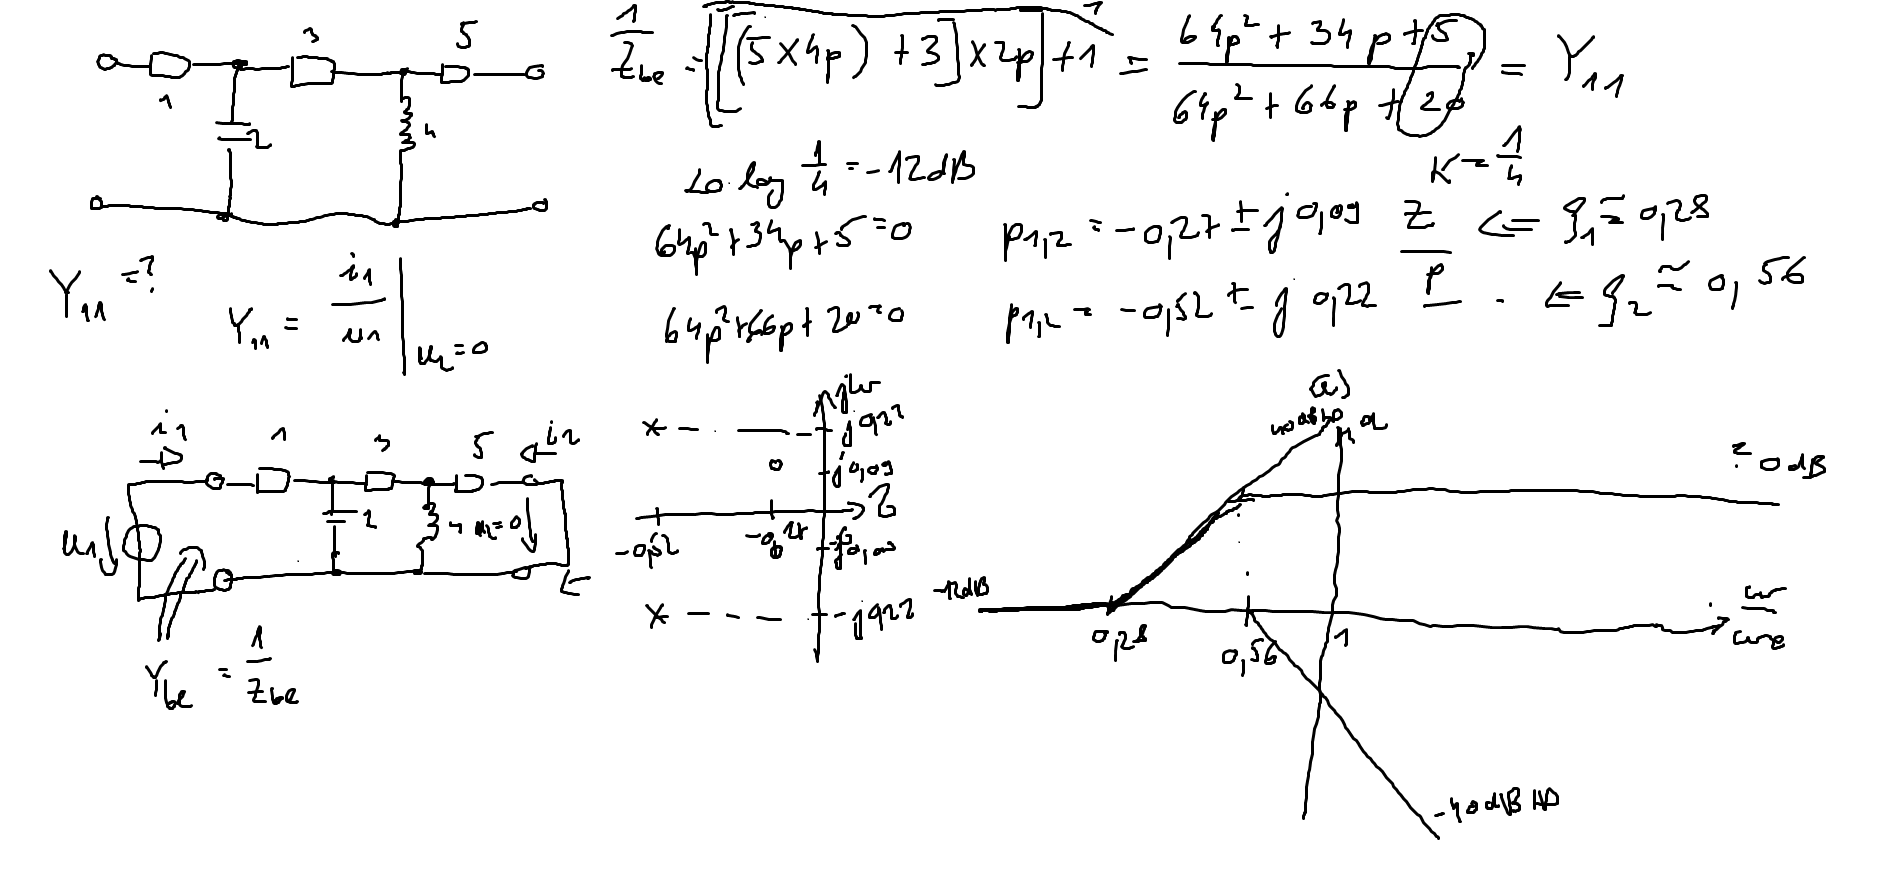 1
3
5
2
4
Y₁₁ = ?
Y₁₁ = i₁ / u₁ | u₂=0
1/Zbe = [[(5 × 4p) + 3] × 2p] + 1 = (64p² + 34p + 5) / (64p² + 66p + 20) = Y₁₁
20 log 1/4 = -12dB
K = 1/4
64p² + 34p + 5 = 0
p1,2 = -0,27 ± j 0,09 Z <= ξ₁ ≅ 0,28
64p² + 66p + 20 = 0
p1,2 = -0,52 ± j 0,22 P <= ξ₂ ≅ 0,56
i1
1
3
5
i2
u1
2
4
u2=0
Ybe = 1/Zbe
jω
j0,22
j0,09
-0,52
-0,27
-j0,09
-j0,22
(a)
0dB
-12dB
0,28
0,56
1
-40dB